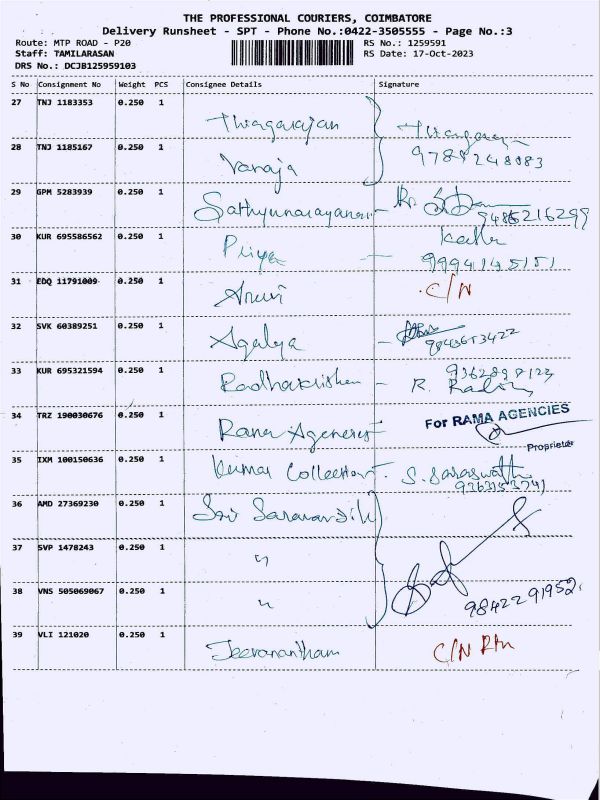 THE PROFESSIONAL COURIERS, COIMBATORE
Delivery Runsheet - SPT - Phone No.:0422-3505555 - Page No.:3
Route: MTP ROAD - P20 RS No.: 1259591
Staff: TAMILARASAN RS Date: 17-Oct-2023
DRS No.: DCJB125959103
S No Consignment No Weight PCS Consignee Details Signature
27 TNJ 1183353 0.250 1
Thiagarajan
28 TNJ 1185167 0.250 1
Vanaja
29 GPM 5283939 0.250 1
Sathyunarayanan 9486216299
30 KUR 695586562 0.250 1
Priya
31 EDQ 11791009 0.250 1
C/N
32 SVK 60389251 0.250 1
Agalya
33 KUR 695321594 0.250 1
Radhakrishan - R.
34 TRZ 190030676 0.250 1
For RAMA AGENCIES
Rama Agencies
Proprietor
35 IXM 100150636 0.250 1
Kumar Collection - S. Saraswathi
36 AMD 27369230 0.250 1
Sri
37 SVP 1478243 0.250 1
"
38 VNS 505069067 0.250 1
" 9842291952
39 VLI 121020 0.250 1
Jeevanantham C/N Rtn